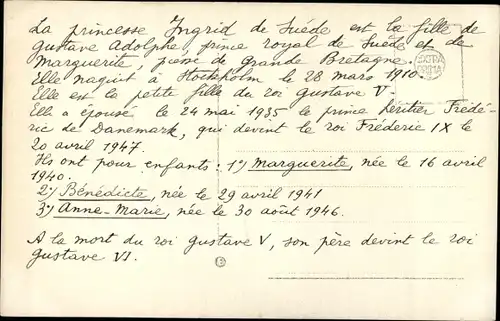 La princesse Ingrid de Suède est la fille de
Gustave Adolphe, prince royal de Suède et de
Marguerite, princesse de Grande Bretagne.
Elle naquit à Stockholm le 28 mars 1910.
Elle est la petite fille du roi Gustave V.
Elle a épousé le 24 mai 1935 le prince héritier Frédé-
ric de Danemark, qui devint le roi Fréderic IX le
20 avril 1947.
Ils ont pour enfants: 1°) Marguerite, née le 16 avril
1940.
2°) Bénédicte, née le 29 avril 1941
3°) Anne-Marie, née le 30 août 1946.
A la mort du roi Gustave V, son père devint le roi
Gustave VI.
EXTRA
PRIMA